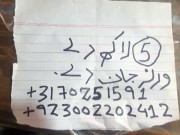 5 لاکھ دے
ورنہ جان دے.
+3170251591
+923002202412